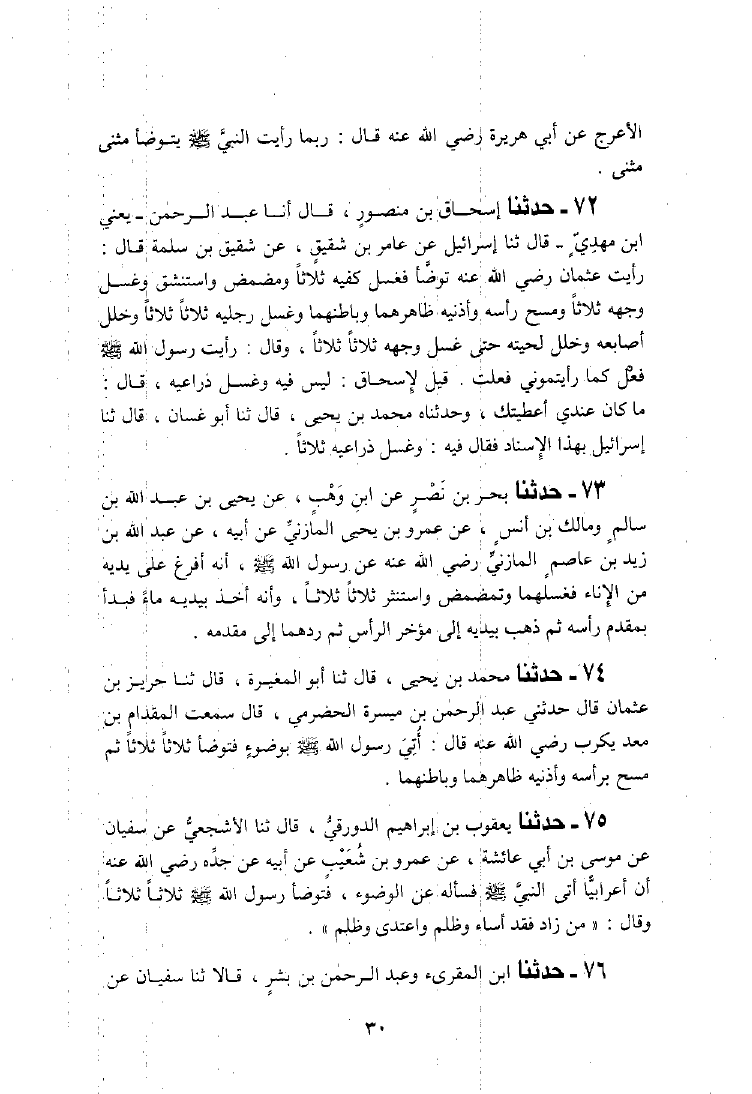 الأعرج عن أبي هريرة رضي الله عنه قال : ربما رأيت النبيَّ ﷺ يتوضأ مثنى
مثنى .
٧٢ - حدثنا إسحاق بن منصورٍ ، قال أنا عبد الرحمن - يعني
ابن مهديّ - قال ثنا إسرائيل عن عامر بن شقيق ، عن شقيق بن سلمة قال :
رأيت عثمان رضي الله عنه توضَّأ فغسل كفيه ثلاثاً ومضمض واستنشق وغسل
وجهه ثلاثاً ومسح رأسه وأذنيه ظاهرهما وباطنهما وغسل رجليه ثلاثاً ثلاثاً وخلل
أصابعه وخلل لحيته حتى غسل وجهه ثلاثاً ثلاثاً ، وقال : رأيت رسول الله ﷺ
فعَل كما رأيتموني فعلت . قيل لإسحاق : ليس فيه وغسل ذراعيه ، قال :
ما كان عندي أعطيتك ، وحدثناه محمد بن يحيى ، قال ثنا أبو غسان ، قال ثنا
إسرائيل بهذا الإسناد فقال فيه : وغسل ذراعيه ثلاثاً .
٧٣ - حدثنا بحر بن نَصْرٍ عن ابنِ وَهْبٍ ، عن يحيى بن عبد الله بن
سالمٍ ومالك بن أنسٍ ، عن عمرو بن يحيى المازنيِّ عن أبيه ، عن عبد الله بن
زيد بن عاصمٍ المازنيِّ رضي الله عنه عن رسول الله ﷺ ، أنه أفرغ على يديه
من الإناء فغسلهما وتمضمض واستنثر ثلاثاً ثلاثاً ، وأنه أخذ بيديه ماءً فبدأ
بمقدم رأسه ثم ذهب بيديه إلى مؤخر الرأس ثم ردهما إلى مقدمه .
٧٤ - حدثنا محمد بن يحيى ، قال ثنا أبو المغيرة ، قال ثنا حريز بن
عثمان قال حدثني عبد الرحمن بن ميسرة الحضرمي ، قال سمعت المقدام بن
معد يكرب رضي الله عنه قال : أُتِيَ رسول الله ﷺ بوضوءٍ فتوضأ ثلاثاً ثلاثاً ثم
مسح برأسه وأذنيه ظاهرهما وباطنهما .
٧٥ - حدثنا يعقوب بن إبراهيم الدورقيُّ ، قال ثنا الأشجعيُّ عن سفيان
عن موسى بن أبي عائشة ، عن عمرو بن شُعَيْبٍ عن أبيه عن جدِّه رضي الله عنه
أن أعرابيًّا أتى النبيَّ ﷺ فسأله عن الوضوء ، فتوضأ رسول الله ﷺ ثلاثاً ثلاثاً
وقال : « من زاد فقد أساء وظلم واعتدى وظلم » .
٧٦ - حدثنا ابن المقرىء وعبد الرحمن بن بشرٍ ، قالا ثنا سفيان عن
٣٠